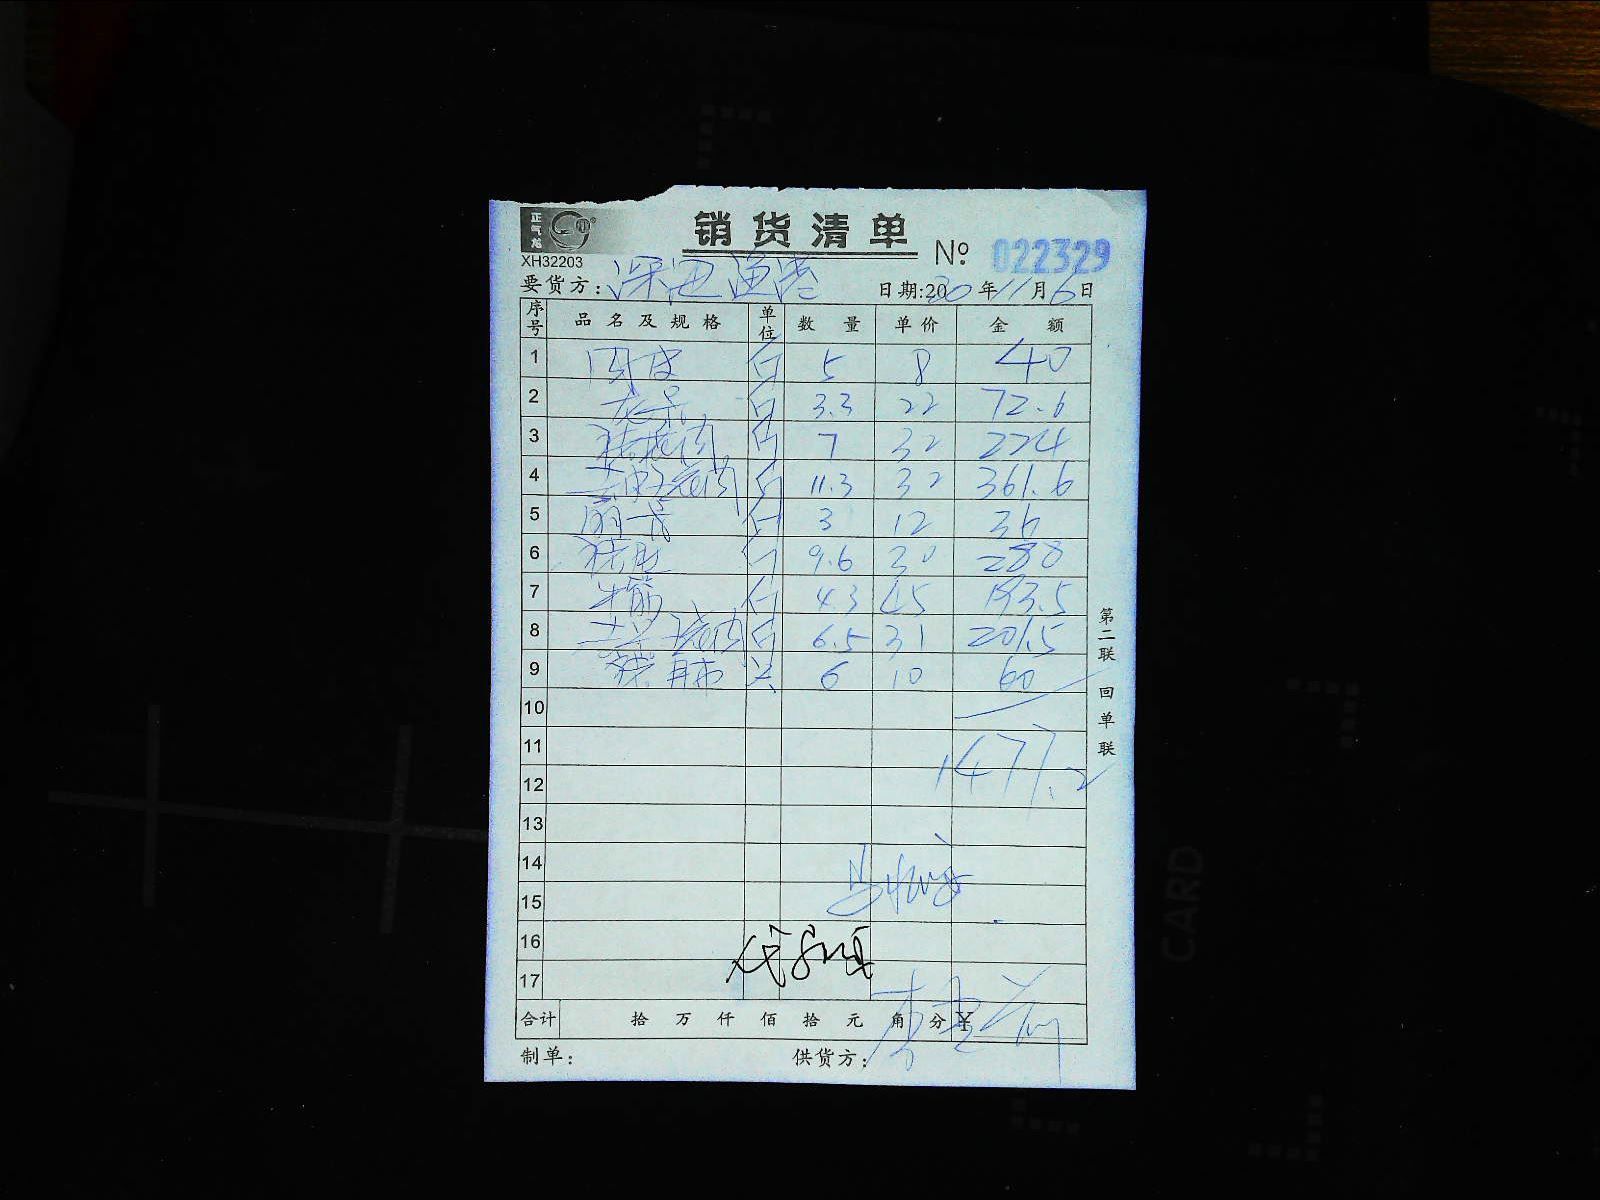 正气龙
销货清单
XH32203
№ 022329
要货方: 深海渔港 日期:2020年11月6日
序号 品名及规格 单位 数量 单价 金额
1 肉皮 斤 5 8 40
2 龙骨 斤 3.3 22 72.6
3 斤 7 32 224
4 去皮 肉 斤 11.3 32 361.6
5 斤 3 12 36
6 猪肚 斤 9.6 30 288
7 牛筋 斤 4.3 45 193.5
8 肉 斤 6.5 31 201.5
9 6 10 60
10
11 1477.2
12
13
14
15
16
17
合计 拾 万 仟 佰 拾 元 角 分 ¥
制单: 供货方:
第二联 回单联
CARD